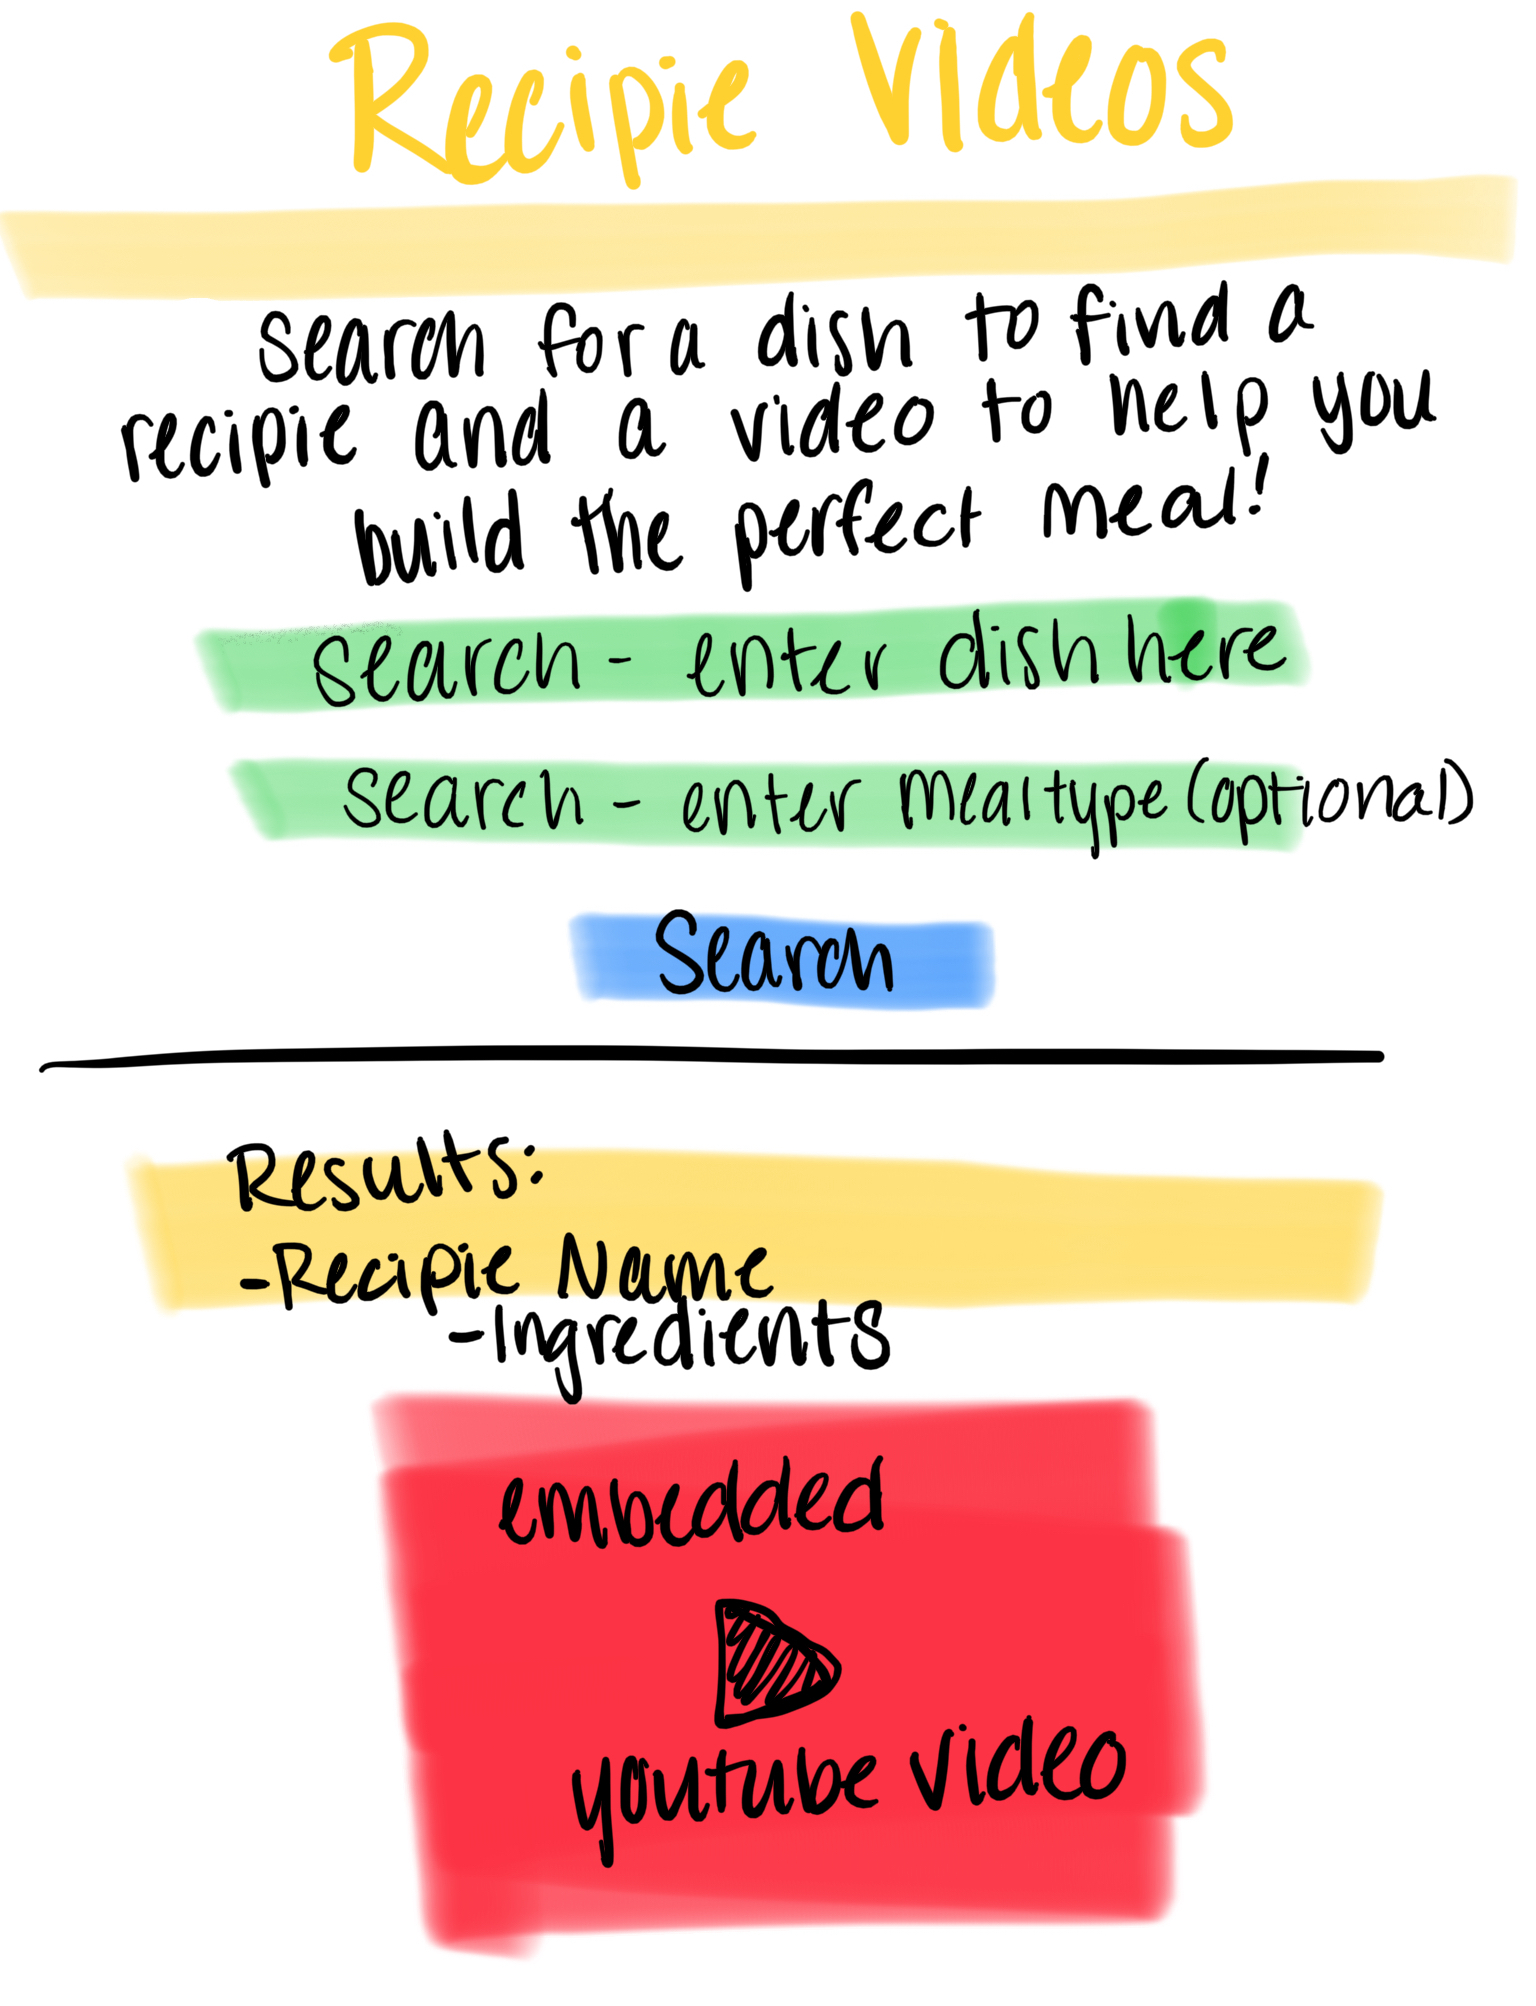 Recipie Videos
Search for a dish to find a
recipie and a video to help you
build the perfect meal!
Search - enter dish here
Search - enter mealtype (optional)
Search
Results:
-Recipie Name
-Ingredients
embedded
youtube video